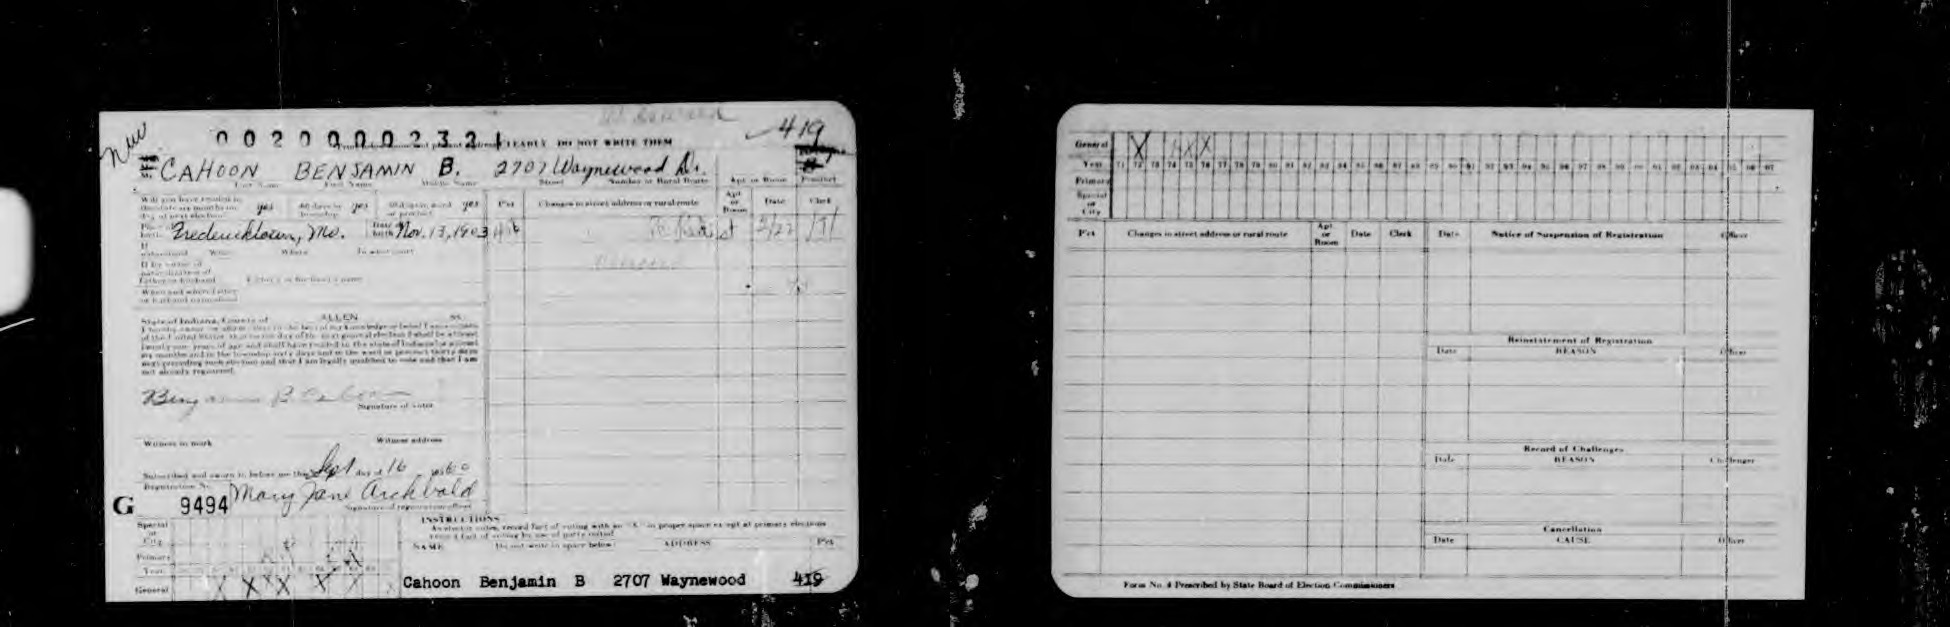 New
419
0020000232 CLEARLY DO NOT WRITE THEM
CAHOON BENJAMIN B. 2707 Waynewood Dr.
Last Name First Name Middle Name Street Number or Rural Route Apt or Room Precinct
Will you have resided in the state six months on day of next election yes 60 days in township yes yes
Pct Changes in street address or rural route Apt or Room Date Clerk
Place of birth Fredericktown, Mo. Date birth Nov. 13, 1903
If naturalized When Where In what court
If by virtue of naturalization of father or husband
When and where father or husband naturalized
State of Indiana, County of ALLEN ss.
of the United States, that on the day of the next general election I shall be at least
twenty-one years of age and shall have resided in the state of Indiana at least
six months and in the township sixty days and in the ward or precinct thirty days
next preceding such election and that I am legally qualified to vote and that I am
not already registered.
Benjamin B Cahoon
Signature of voter
Witness to mark Witness address
Subscribed and sworn to before me this Sept day of 16
Registration No.
G 9494 Mary Jane Archbold
Signature of registration officer
INSTRUCTIONS
As elector votes, record fact of voting with an "X" in proper space except at primary elections
record fact of voting by use of party initial
NAME Do not write in space below ADDRESS Pct
Special or City
Primary
Year
General
Cahoon Benjamin B 2707 Waynewood 419
General X X X
Year 71 72 73 74 75 76 77 78 79 80 81 82 83 84 85 86 87 88 89 90 91 92 93 94 95 96 97 98 99 00 01 02 03 04 05 06 07
Primary
Special or City
Pct Changes in street address or rural route Apt or Room Date Clerk Date Notice of Suspension of Registration Officer
Reinstatement of Registration
Date REASON Officer
Record of Challenges
Date REASON Challenger
Cancellation
Date CAUSE Officer
Form No. 4 Prescribed by State Board of Election Commissioners